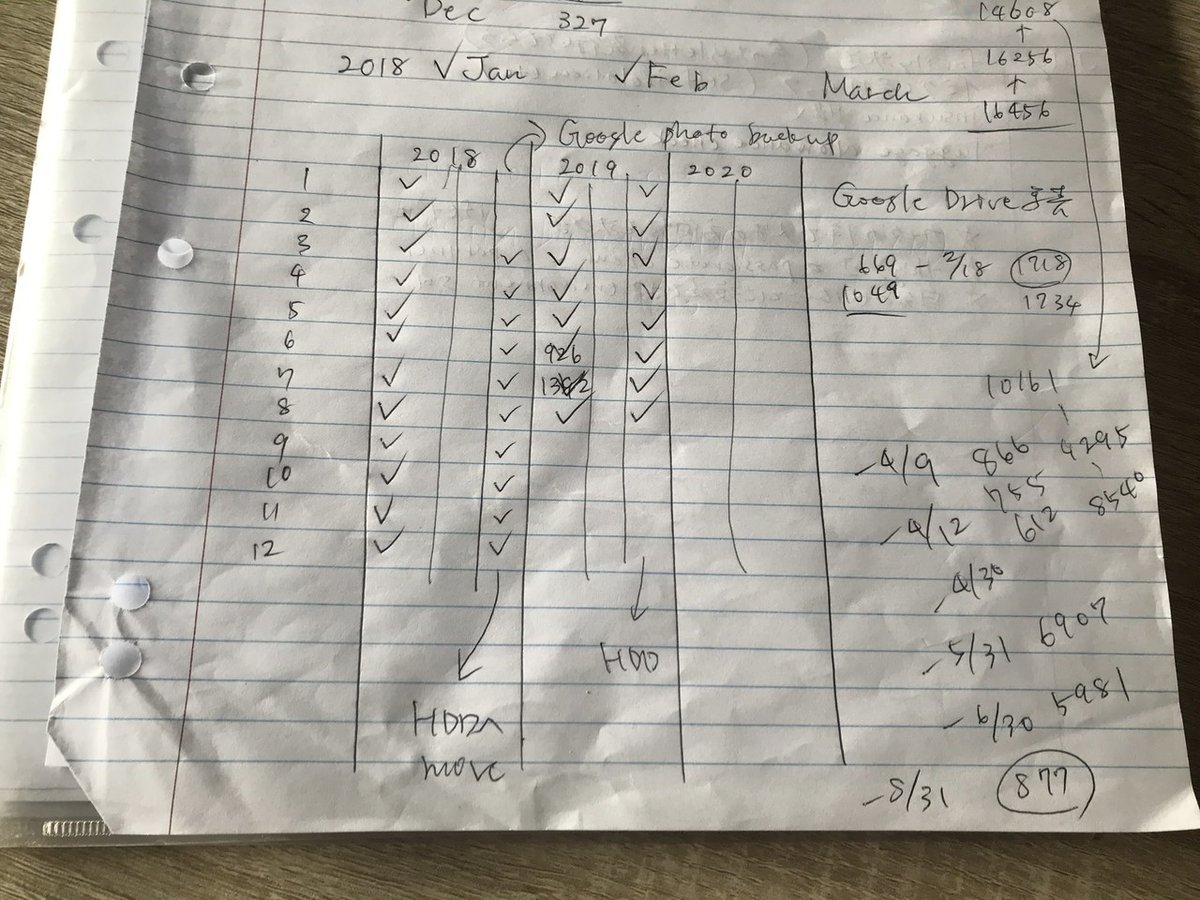 Dec 327 14608
+
2018 ✓Jan ✓Feb 16256
March +
16456
Google photo backup
2018 2019 2020
1 ✓ ✓ ✓
2 ✓ ✓ ✓
Google Drive
3 ✓ ✓ ✓ ✓
669 - 2/18 1218
4 ✓ ✓ ✓ ✓
1049 1234
5 ✓ ✓ ✓ ✓
6 ✓ ✓ 926 ✓
7 ✓ ✓ ✓
10161
8 ✓ ✓ ✓ ✓
9 ✓ ✓
-4/9 866 4295
10 ✓ ✓
755
11 ✓ ✓
-4/12 612 8540
12 ✓ ✓
4/30
HDD
-5/31 6907
-6/30 5981
move
-8/31 877